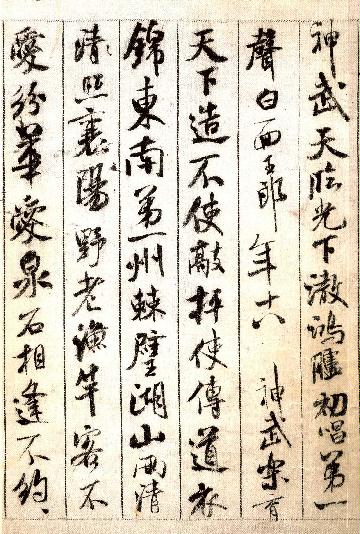 神武天臨光下澈鴻臚初唱第一
聲白面王郎年十八神武樂育
天下造不使敲抨使傳道衣
錦東南第一州棘璧湖山兩清
照襄陽野老漁竿客不
愛紛華愛泉石相逢不約